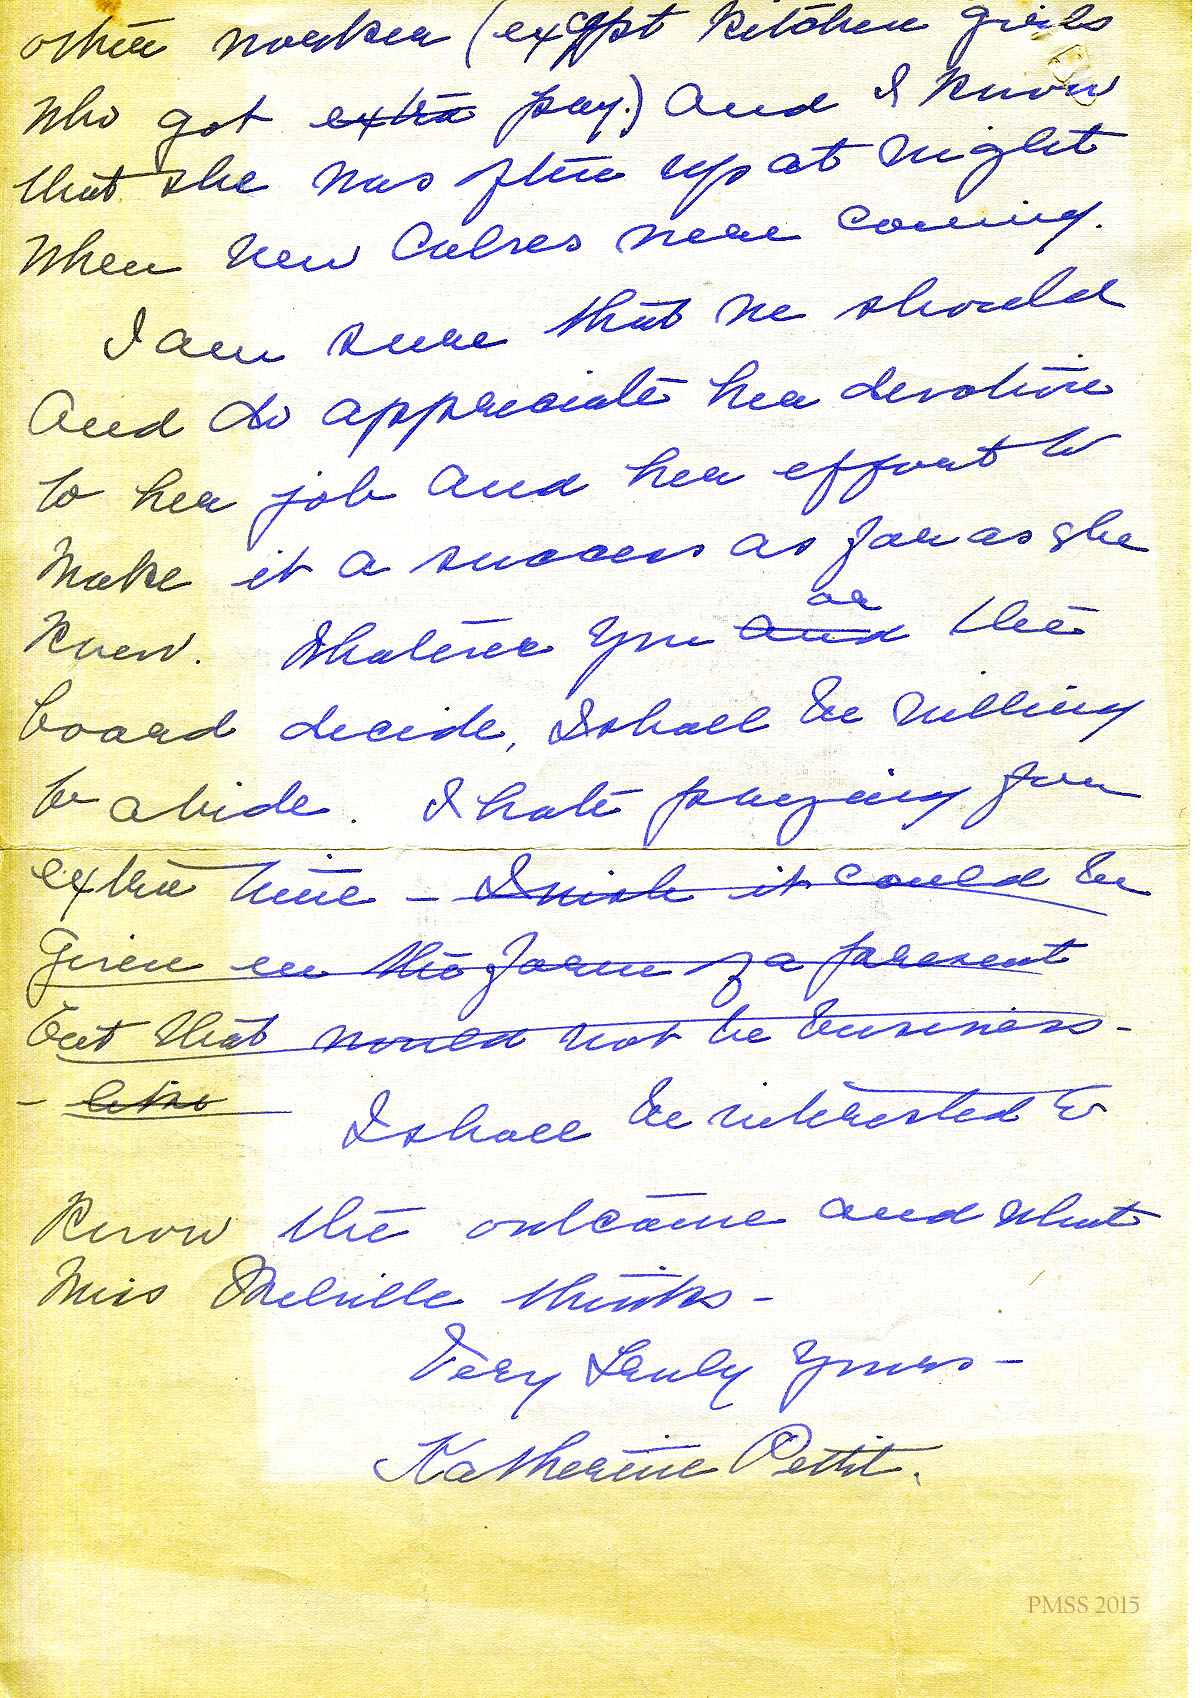 other worker (except kitchen girls
who got extra pay.) and I know
that she was often up at night
when new calves were coming.
I am sure that we should
and do appreciate her devotion
to her job and her effort to
make it a success as far as she
knew. Whatever you and or the
board decide, I shall be willing
to abide. I hate paying for
extra time – I wish it could be
given in the form of a present
but that would not be business-
- like
I shall be interested to
know the outcome and what
Miss Melville thinks –
Very truly yours –
Katherine Pettit.
PMSS 2015